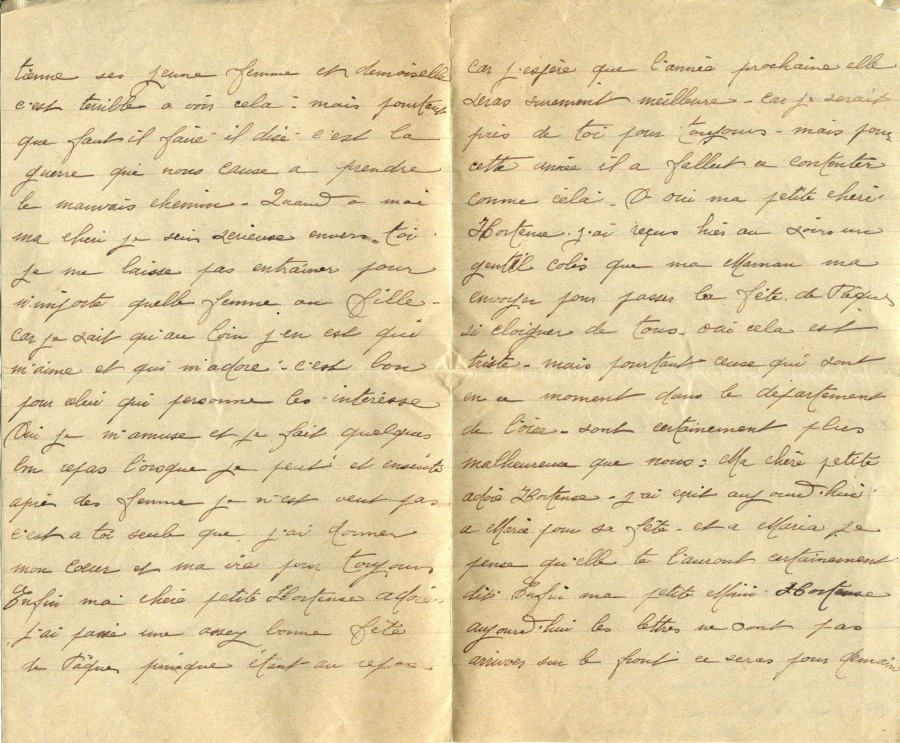 tienne ses jeune femme et demoiselle
c'est terrible a voir cela : mais pourtant
que faut il faire il dise c'est la
guerre qui nous cause a prendre
le mauvais chemin - Quand a moi
ma cheri je suis serieuse envers toi
je me laisse pas entrainer pour
n'importe quelle femme ou fille -
car je sait qu'au loin j'en est qui
m'aime et qui m'adore - c'est bon
pour celui qui personne les intéresse
Oui je m'amuse et je fait quelques
bon repas l'orsque je peut et ensuite
après des femme je n'est veut pas
c'est a toi seule que j'ai donner
mon coeur et ma vie pour toujours
Enfin ma chère petite Hortense adoré -
j'ai passé une assez bonne fête
de Pâque puisque étant au repos
car j'espère que l'année prochaine elle
seras surement meilleure - car je serait
près de toi pour toujours - mais pour
cette année il a fallut ce contenter
comme cela - O oui ma petite chéri
Hortense j'ai reçus hier au soirs un
gentil colis que ma Maman ma
envoyer pour passer la fête de Pâque
si eloigner de tous - oui cela est
triste - mais pourtant ceuse qui sont
en ce moment dans le département
de l'oise - sont certainement plus
malheureuse que nous : Ma chère petite
adoré Hortense - j'ai ecrit aujourd'hui
a Marie pour sa fête - et a Maria je
pense qu'elle te l'auront certainement
dit Enfin ma petite Mimi Hortense
aujourd'hui les lettres ne sont pas
arriver sur le front ce seras pour demain